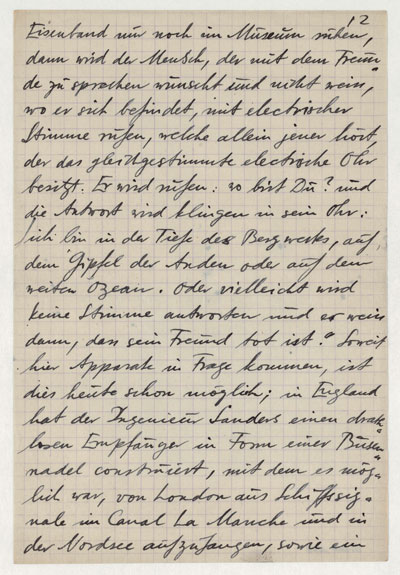 12
Eisenband nur noch im Museum ruhen,
dann wird der Mensch, der mit dem Freun=
de zu sprechen wünscht und nicht weiss,
wo er sich befindet, mit electrischer
Stimme rufen, welche allein jener hört,
der das gleichgestimmte electrische Ohr
besitzt. Er wird rufen: wo bist Du? und
die Antwort wird klingen in sein Ohr:
ich bin in der Tiefe des Bergwerks, auf
dem Gipfel der Anden oder auf dem
weiten Ozean. Oder vielleicht wird
keine Stimme antworten und er weiss
dann, dass sein Freund tot ist." Soweit
hier Apparate in Frage kommen, ist
dies heute schon möglich; in England
hat der Ingenieur Sanders einen draht=
losen Empfänger in Form einer Busen=
nadel construiert, mit dem es mög=
lich war, von London aus Schiffssig=
nale im Canal La Manche und in
der Nordsee aufzufangen, sowie ein